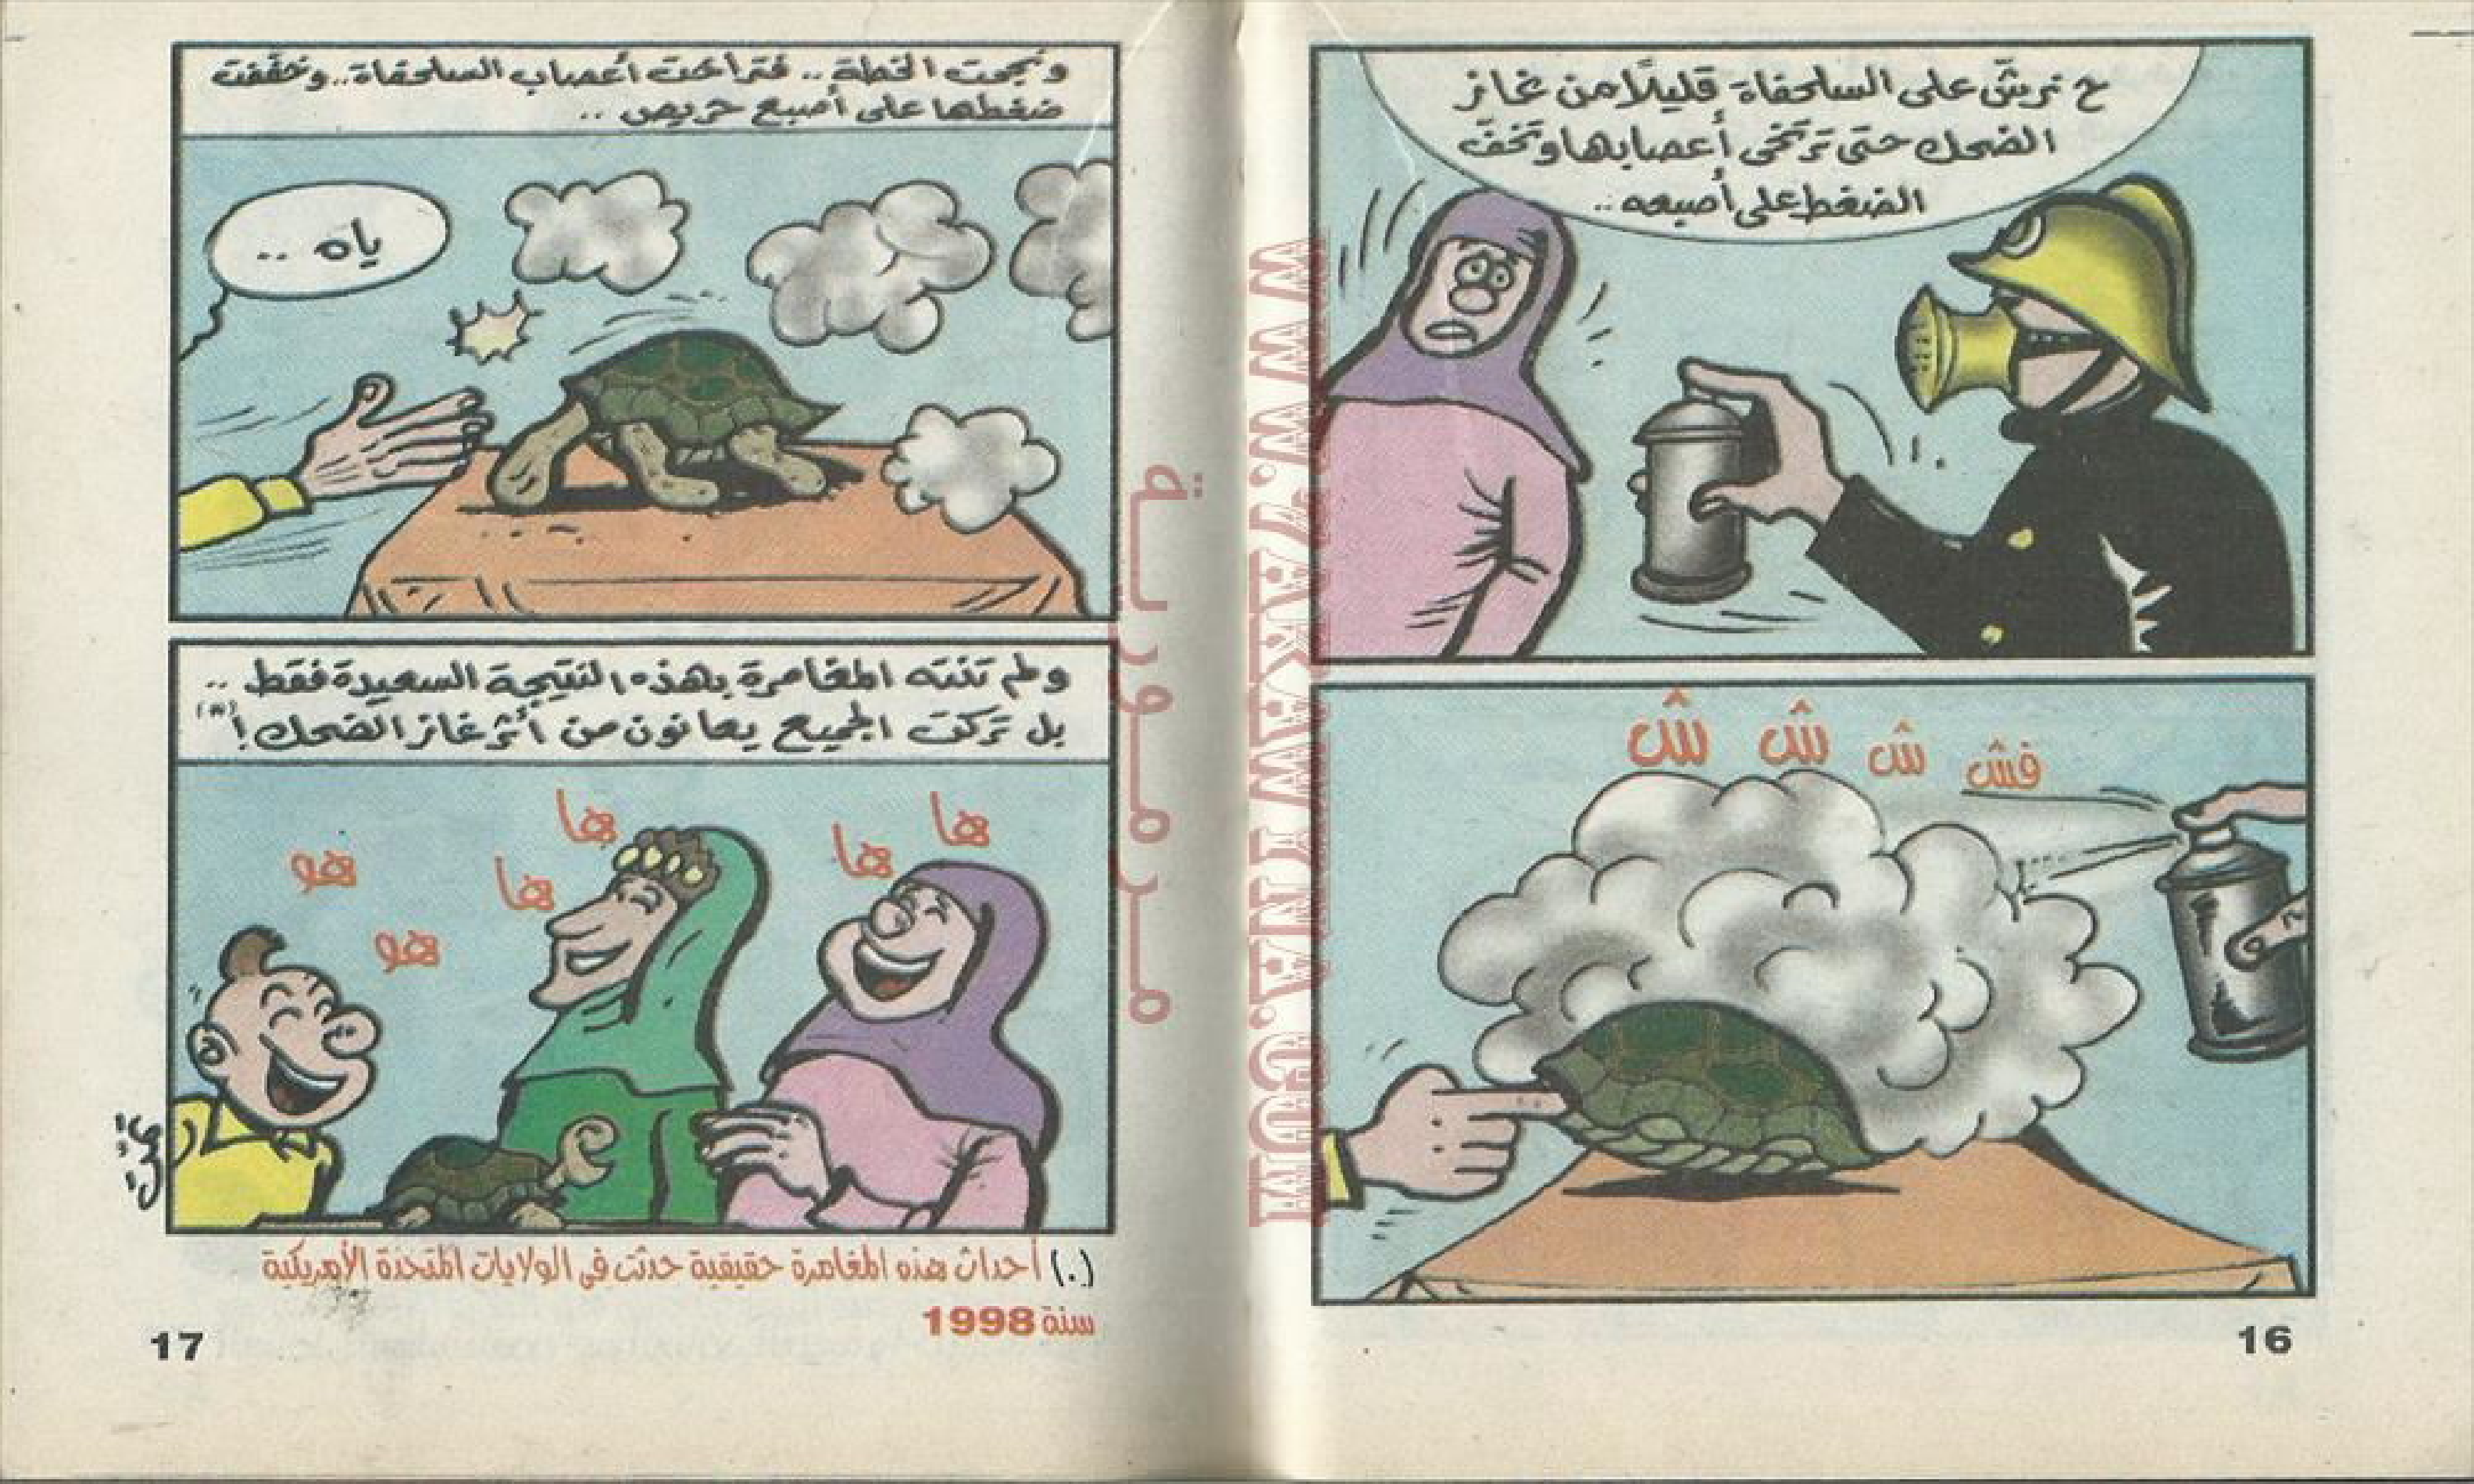 ح نرشّ على السلحفاة قليلًا من غاز
الضحك حتى ترتخى أعصابها وتخفّ
الضغط على أصبعه ..
فش ش ش ش
16
ونجحت الخطة .. فتراخت أعصاب السلحفاة .. وخفّفت
ضغطها على أصبع حريص ..
ياه ..
ولم تنته المغامرة بهذه النتيجة السعيدة فقط ..
بل تركت الجميع يعانون من أثر غاز الضحك ! (*)
ها
ها
ها
ها
هو
هو
(.) أحداث هذه المغامرة حقيقية حدثت فى الولايات المتحدة الأمريكية
سنة 1998
17
مـرمـوريـة